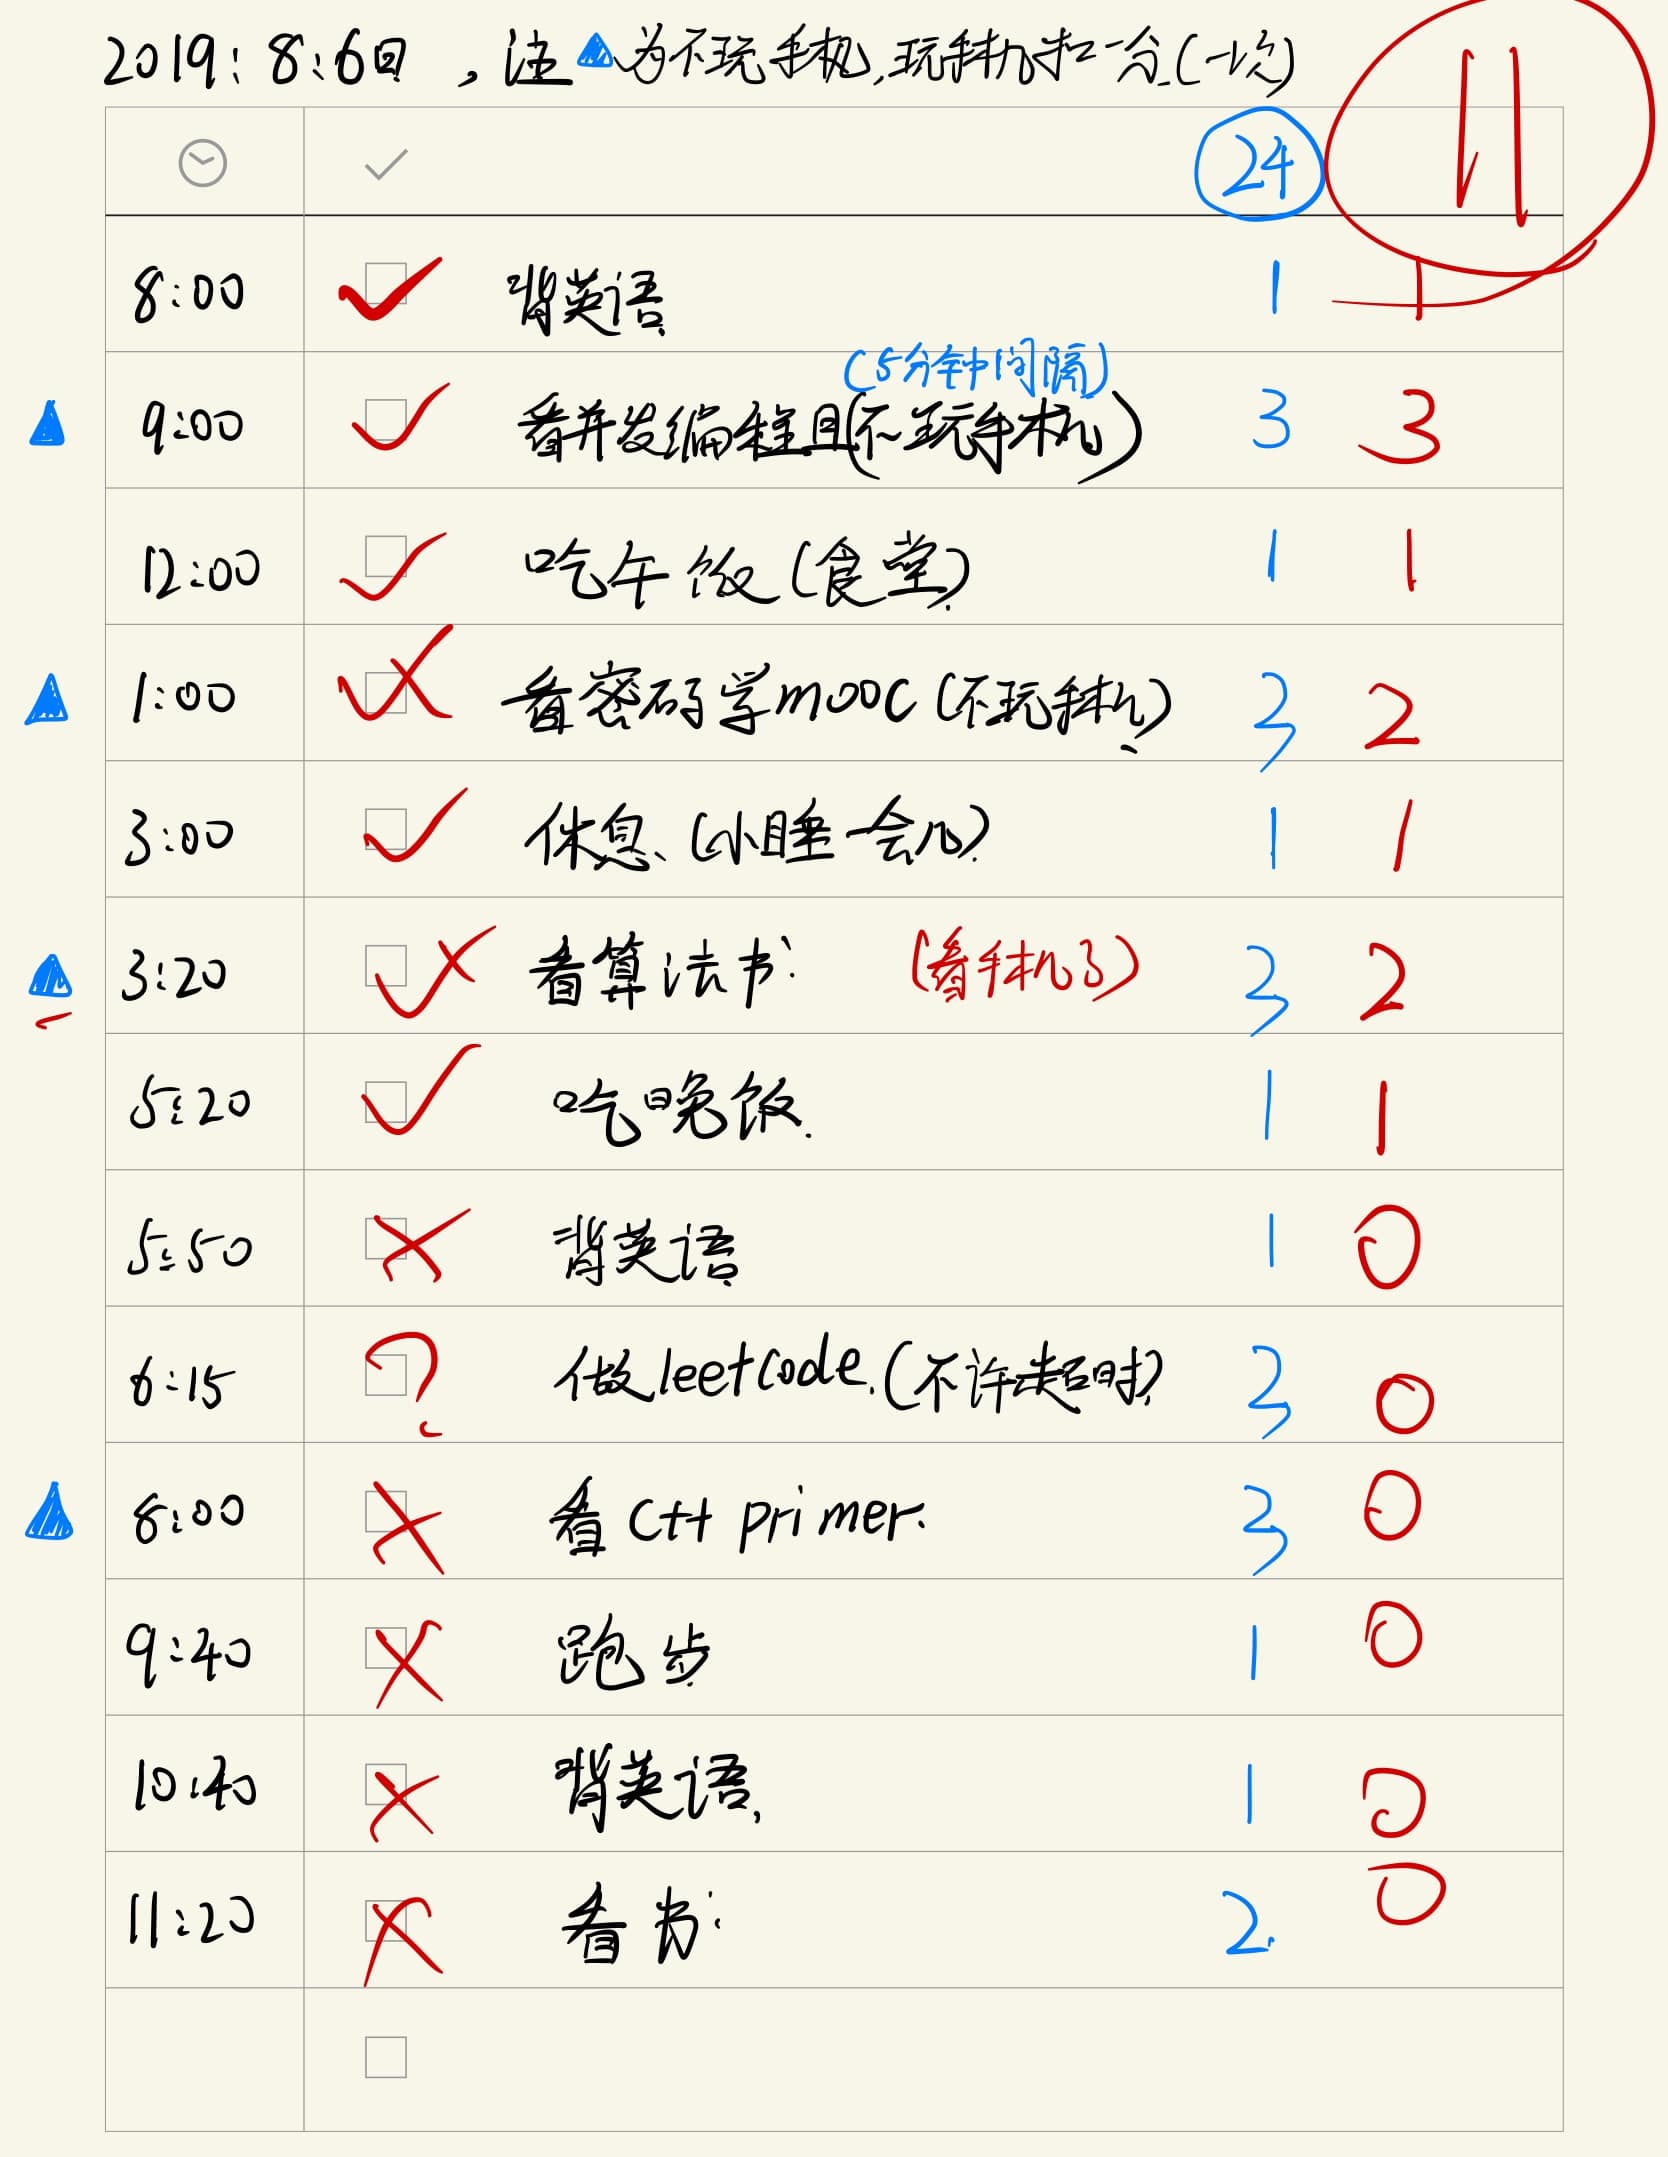 2019:8:6日，注▲为不玩手机,玩手机扣一分.(一次)
24 11
8:00 背英语 1 1
(5分钟间隔)
9:00 看并发编程且(不玩手机) 3 3
12:00 吃午饭(食堂) 1 1
1:00 看密码学mooc(不玩手机) 3 2
3:00 休息、(小睡一会儿) 1 1
3:20 看算法书 (看手机了) 3 2
5:20 吃晚饭. 1 1
5:50 背英语 1 0
6:15 ? 做leetcode.(不许超时) 3 0
8:00 看C++ primer. 3 0
9:40 跑步 1 0
10:40 背英语, 1 0
11:20 看书 2. 0